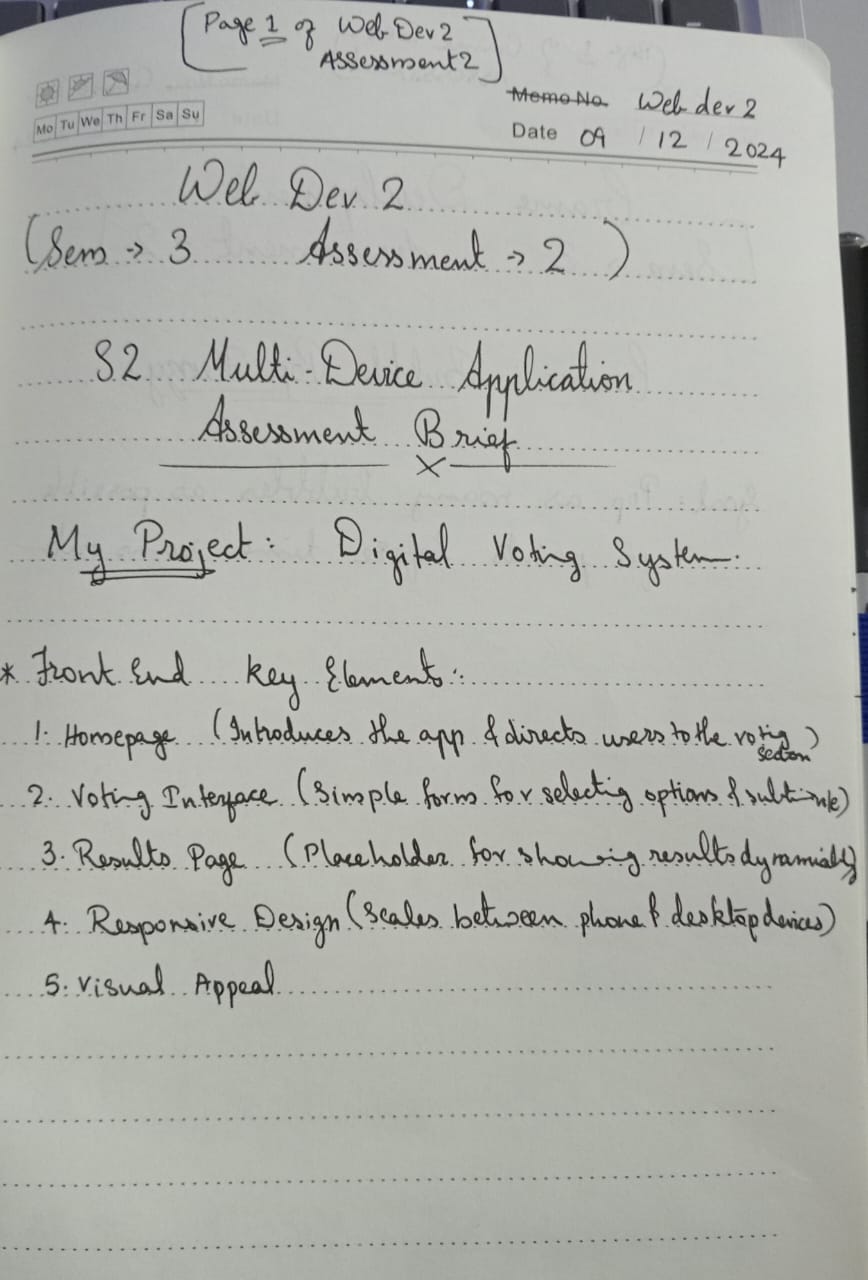 [Page 1 of Web Dev 2
Assessment 2]
Memo No. Web dev 2
Mo Tu We Th Fr Sa Su
Date 09 / 12 / 2024
Web Dev 2
(Sem → 3 Assessment → 2)
S2 Multi-Device Application
Assessment Brief
x
My Project: Digital Voting System.
* Front End key Elements:
1. Homepage (Introduces the app & directs users to the voting section)
2. Voting Interface (Simple form for selecting options & submit vote)
3. Results Page (Placeholder for showing results dynamically)
4. Responsive Design (Scales between phone & desktop devices)
5. Visual Appeal